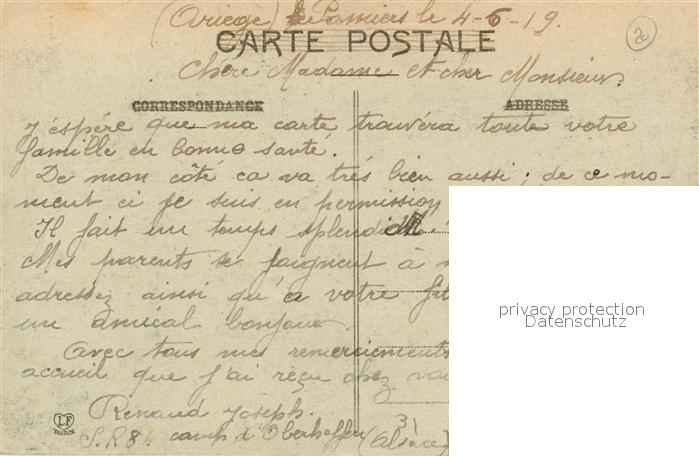 (Ariège) Pamiers le 4-6-19.
20
CARTE POSTALE
Chère Madame et cher Monsieur.
CORRESPONDANCE
ADRESSE
J'éspére que ma carte trouvéra toute votre
famille en bonne sante.
De mon côté ca va trés bien aussi; de ce mo-
ment ci je suis en permission
Il fait un temps splendide.
Mes parents se joignent à
adressez ainsi qu'a votre
un amical bonjour.
Avec tous mes remerciements
accueil que j'ai réçu chez
Renaud Joseph.
S.R 84 camp d'Oberhoffen (Alsace)
31
LF
privacy protection
Datenschutz